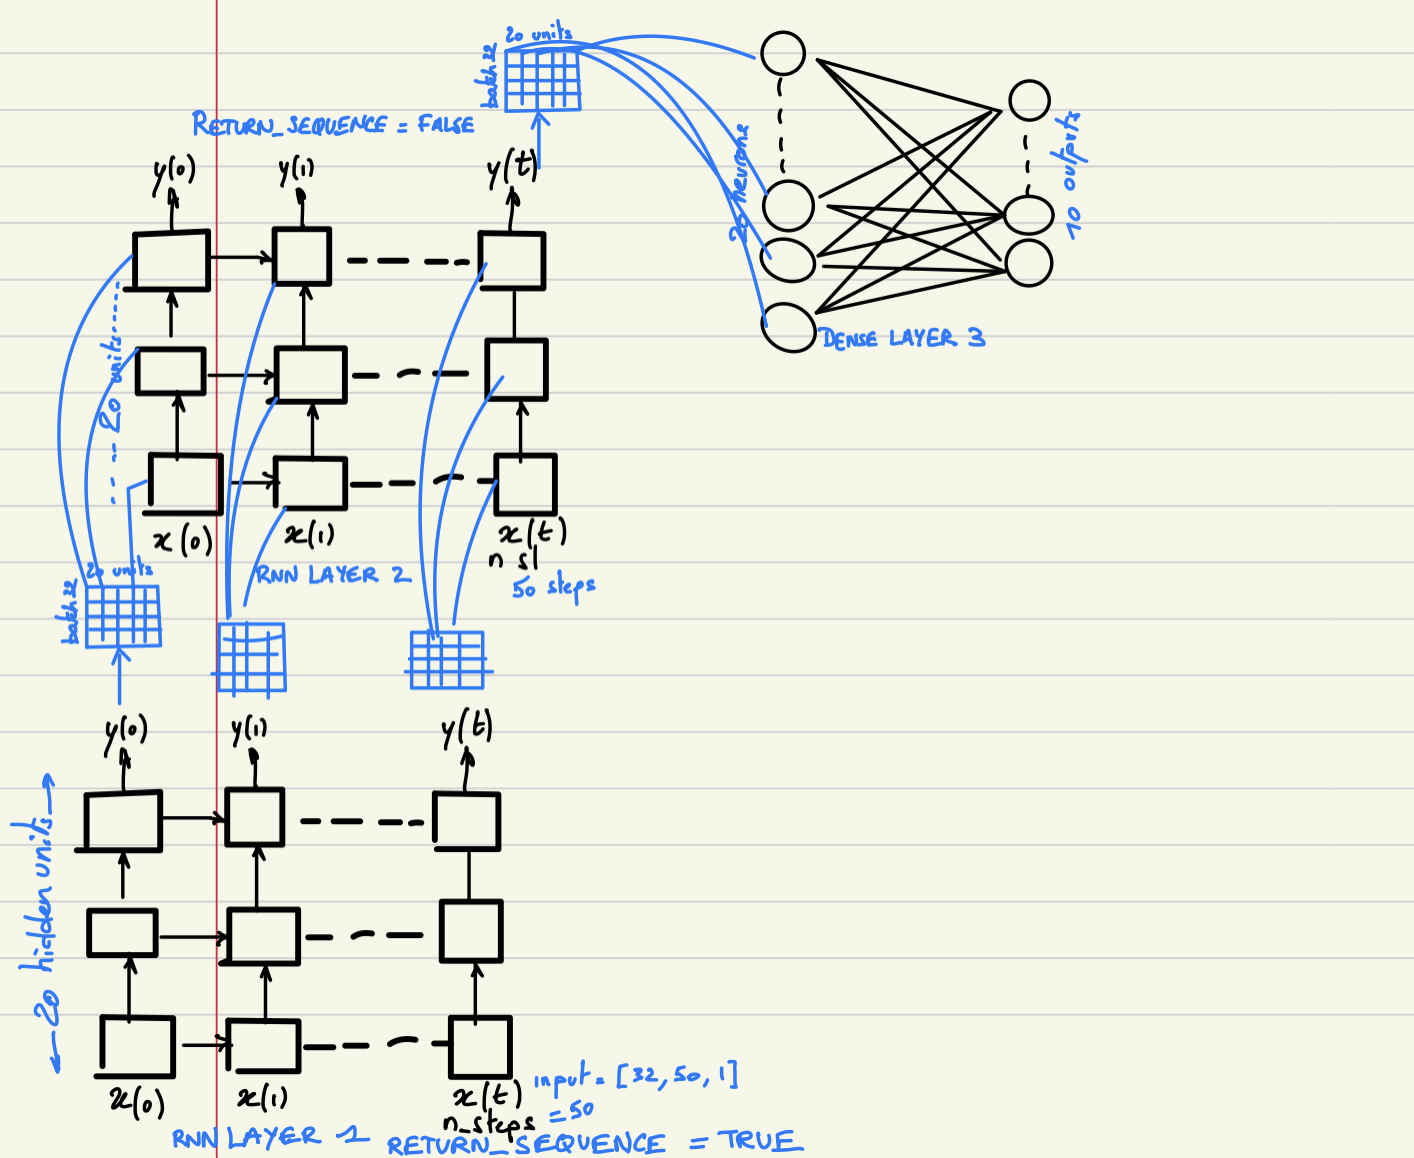 20 units
batch 32
RETURN_SEQUENCE = FALSE
y(0) y(1) y(t)
20 neurons
10 outputs
DENSE LAYER 3
20 units
x(0) x(1) x(t)
n sl
50 steps
RNN LAYER 2
20 units
batch 32
y(0) y(1) y(t)
20 hidden units
x(0) x(1) x(t)
n_steps = 50
input = [32, 50, 1]
RNN LAYER 1 RETURN_SEQUENCE = TRUE